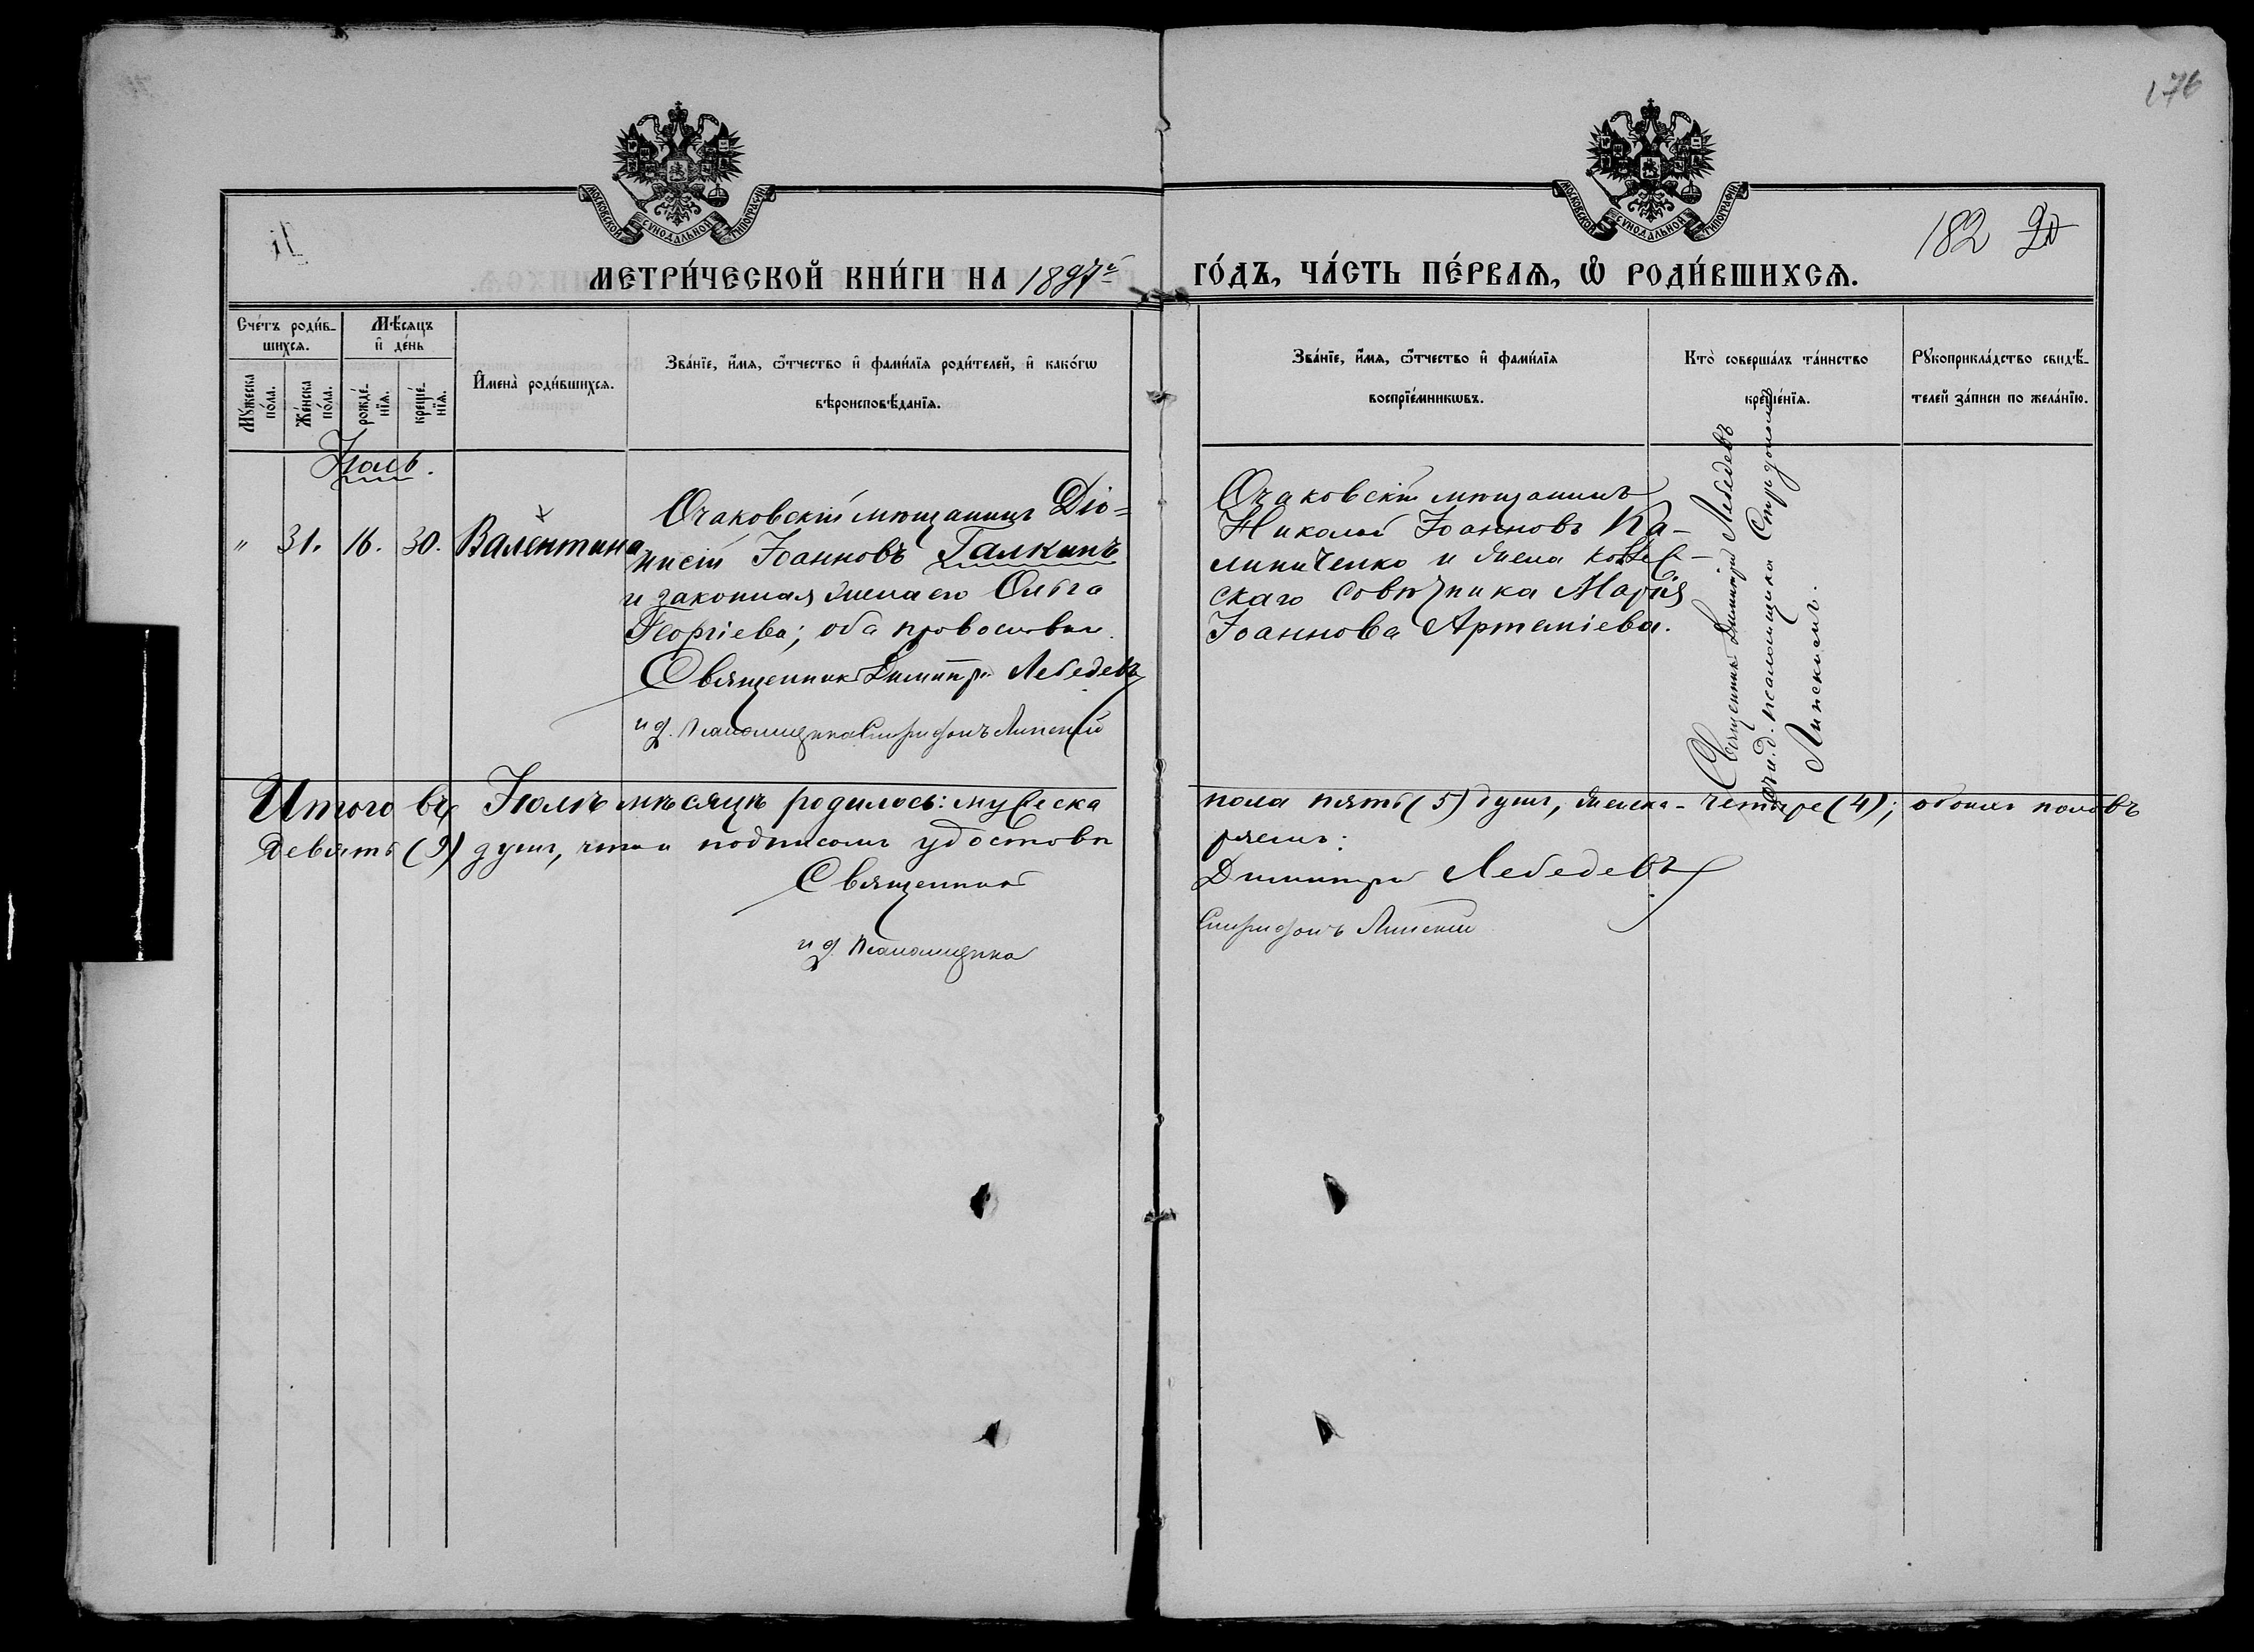 176
МОСКОВСКОЙ СѴНОДАЛЬНОЙ ТИПОГРАФІИ
МОСКОВСКОЙ СѴНОДАЛЬНОЙ ТИПОГРАФІИ
182 20
МЕТРИ́ЧЕСКОЙ КНИ́ГИ НА 1897й ГО́ДЪ, ЧА́СТЬ ПЕ́РВАѦ, Ѡ҆ РОДИ́ВШИХСѦ.
Сче́тъ роди́в-
шихсѧ.
Мѣ́сяцъ
и҆ де́нь
Мꙋ́жеска
по́ла.
Же́нска
по́ла.
рожде́-
нїѧ.
креще́-
нїѧ.
И҆мена̀ роди́вшихсѧ.
Зва́нїе, и҆́мѧ, ѻ҆́тчество и҆ фами́лїѧ роди́телей, и҆ како́гѡ
вѣроисповѣ́данїѧ.
Зва́нїе, и҆́мѧ, ѻ҆́тчество и҆ фами́лїѧ
воспрїе́мникѡвъ.
Кто̀ соверша́лъ та́инство
креще́нїѧ.
Рꙋкоприкла́дство свидѣ́-
телей за́писи по жела́нїю.
Іюль.
" 31. 16. 30. Валентина
Очаковскій мѣщанинъ Діо=
нисій Іоанновъ Галкинъ
и законная жена его Ольга
Георгіева; оба православн.
Священникъ Димитрій Лебедевъ
и д. псаломщика Спиридонъ Липскій
Очаковскій мѣщанинъ
Николай Іоанновъ Ка-
линиченко и жена коллеж-
скаго совѣтника Марія
Іоаннова Артеміева.
Священникъ Димитрій Лебедевъ
съ и. д. псаломщика Спиридономъ
Липскимъ.
Итого въ Іюлѣ мѣсяцѣ родилось: мужеска пола пять (5) душъ, женска - четыре (4); обоихъ половъ
девять (9) душъ, что и подписомъ удостовѣ ряемъ:
Священникъ Димитрій Лебедевъ
и д. псаломщика Спиридонъ Липскій